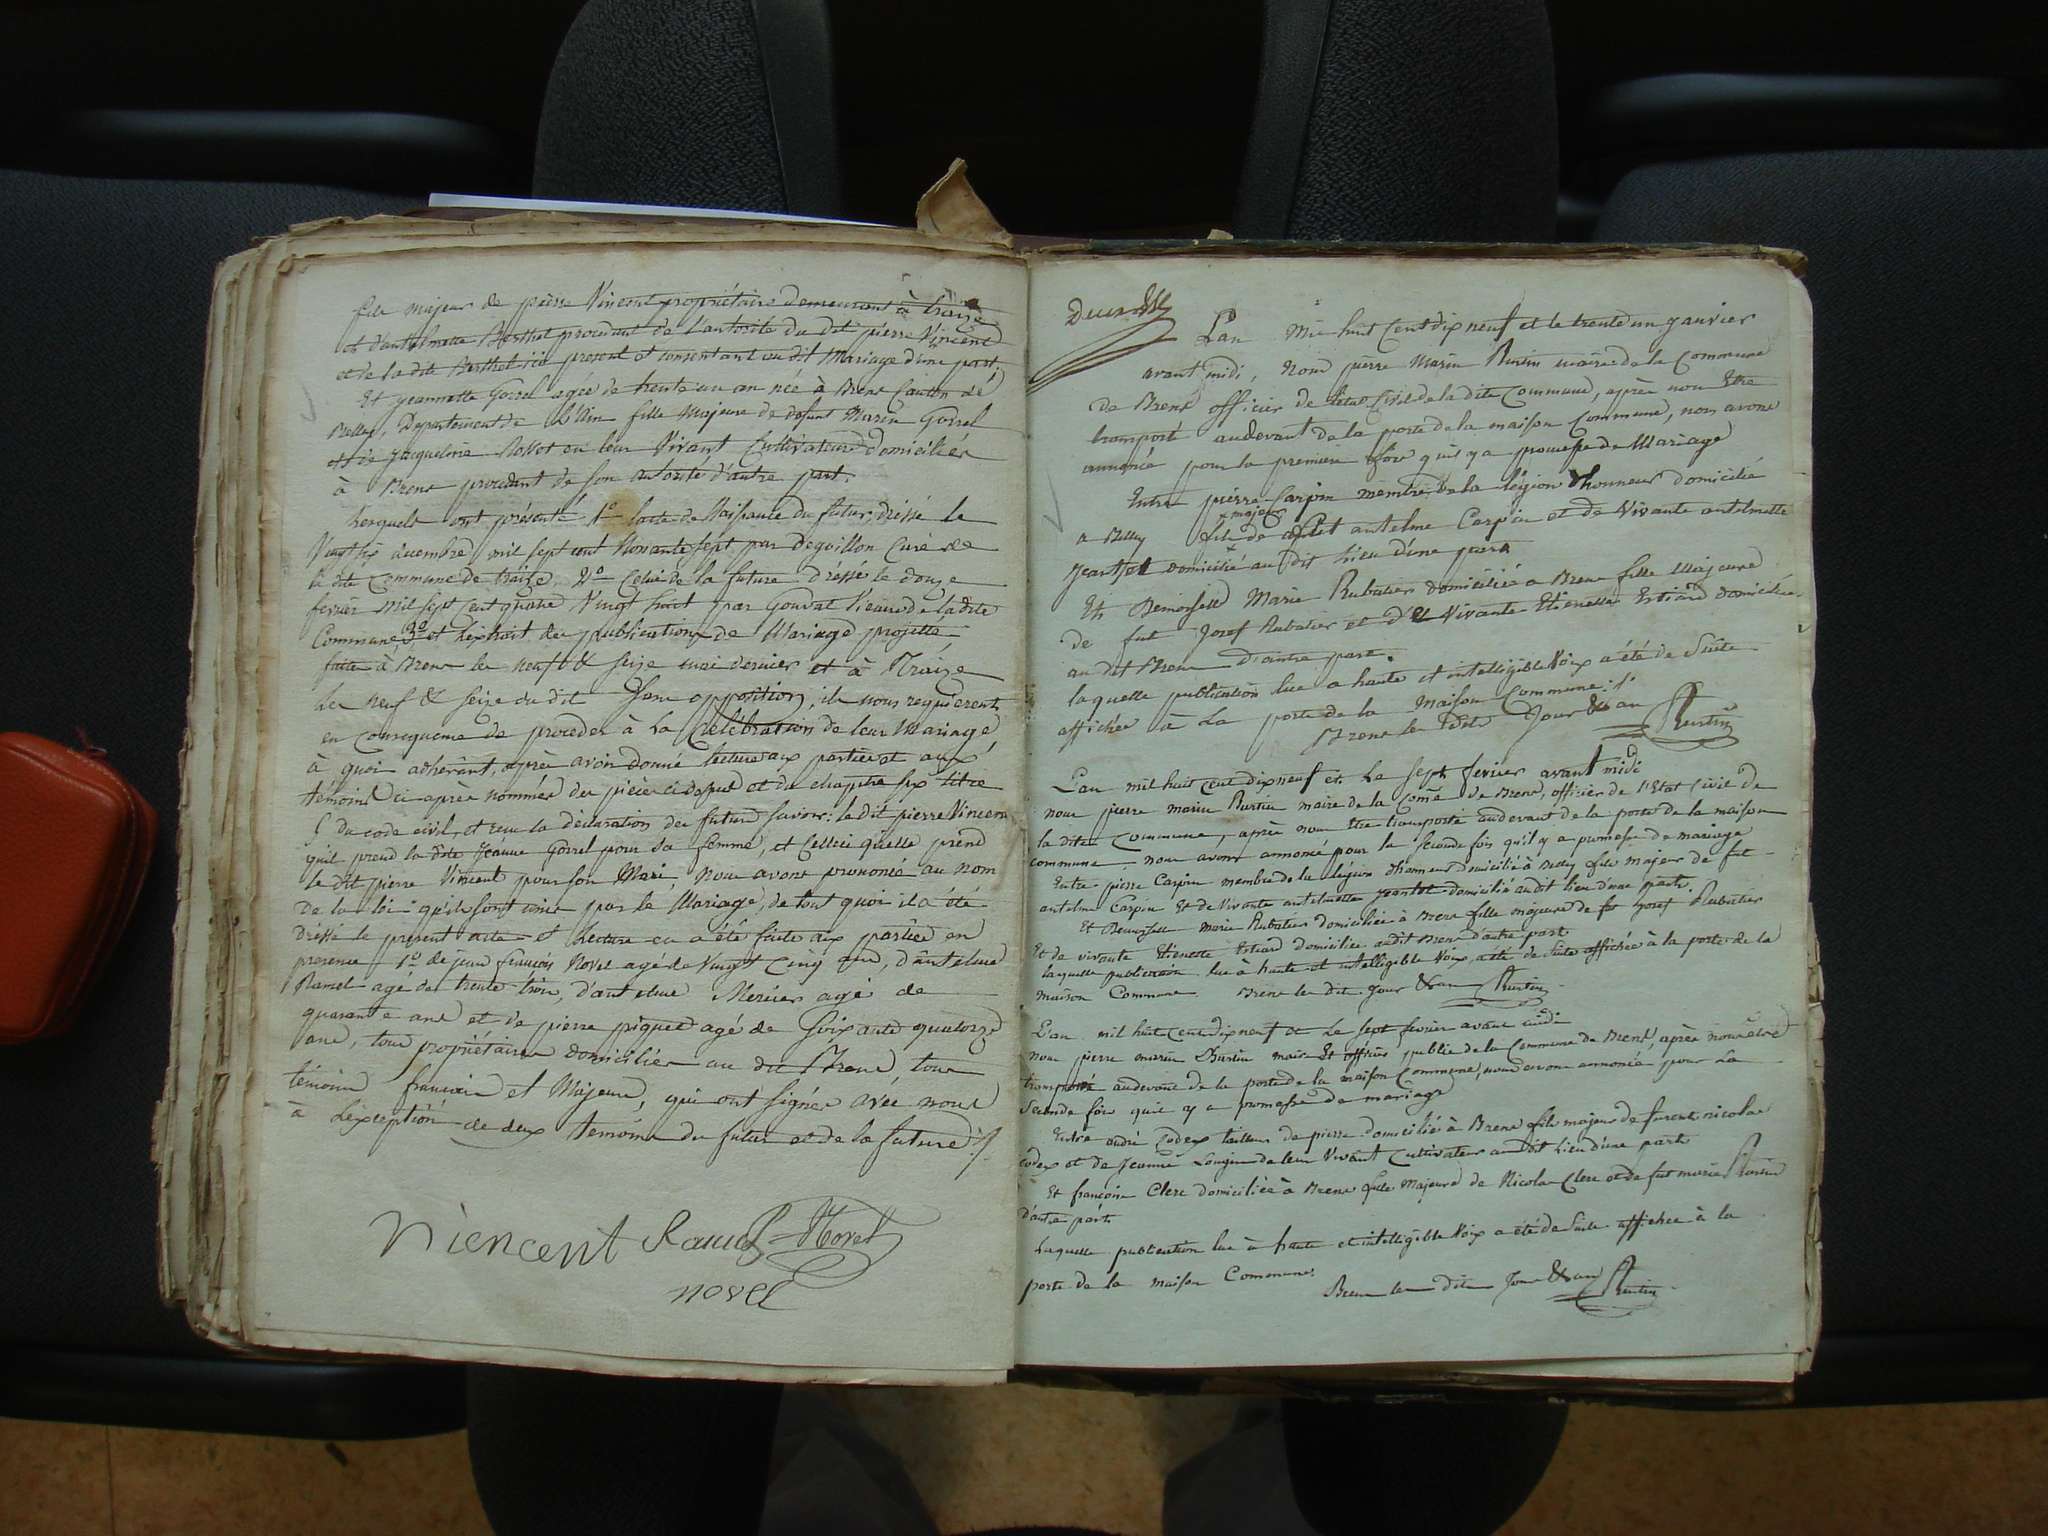 fils majeur de pierre Vincent propriétaire demeurant à traize
et d'antelmette Berthet procedant de l'autorité du dit pierre Vincent
et de la dite Berthet ici present et consentant au dit Mariage d'une part,
Et jeannette Gorrel agée de trente un an née à Brens Canton de
Belley, Departement de L'Ain fille Majeure de defunt Marin Gorrel
et de jacqueline Rosset en leur Vivant Cultivateurs domiciliés
à Brens procedant de son autorité d'autre part.
Lesquels ont présenté 1º lacte de Naissance du futur dréssé le
Vingt six decembre mil sept cent Nonante sept par Deguillon Curé de
la dite Commune de traize, 2º Celui de la future dréssé le douze
fevrier mil sept cent quatre Vingt huit par Gouvat Vicaire de la dite
Commune, 3º et L'extrait des publications de Mariage projetté
faite à Brens les neuf & seize mai dernier et à Traize
les neuf & seize du dit sans opposition, ils nous requierent
en consequence de proceder à la Celébration de leur Mariage
à quoi adherant, après avoir donné lecture aux parties et aux
témoins ci après nommés des pièces ci dessus et du chapitre six titre
5 du code civil, et recu la déclaration des futurs savoir: le dit pierre Vincent
quil prend la dite Jeanne Gorrel pour sa femme, et Celleci qu'elle prend
le dit pierre Vincent pour son Mari, Nous avons prononcé au nom
De la loi qu'ils sont unis par le Mariage, de tout quoi il a été
dréssé le present acte et Lecture en a été faite aux parties en
presence 1º de jean françois Novel agé de Vingt Cinq ans, d'antelme
Ramel agé de trente trois, d'antelme Mercier agé de
quarante ans et de pierre piquet agé de Soixante quatorze
ans, tous propriétaires domiciliés au dit Brens, tous
témoins français et Majeurs, qui ont signés avec nous
à L'exception de deux temoins du futur et de la future ./.
Viencent Ramel Novel
novel
L'an Mil huit Cent dix neuf et le trente un janvier
avant midi, Nous pierre Marin Burtin maire de la Commune
de Brens officier de L'état Civil de la dite Commune, après nous être
transporté au devant de la porte de la maison Commune, nous avons
annoncé pour la première fois qu'il y a promesse de Mariage
Entre pierre Carpin membre de la légion d'honneur domicilié
a Belley fils + majeur de + fut antelme Carpin et de Vivante antelmette
Jeantet domicilié au dit Lieu d'une part.
Et Demoiselle Marie Rubatier domiciliée a Brens fille Majeure
de fut Josef Rubatier et de Vivante Etienette Estiard domiciliée
au dit Brens D'autre part.
laquelle publication lue a haute et intelligible Voix a été de Suite
affichée à La porte de la Maison Commune ./.
Brens les dits Jour & an Burtin
L'an mil huit cent dix neuf et Le sept fevrier avant midi
nous pierre marin Burtin maire de la Come de Brens, officier de l'Etat Civil de
la dite Commune, après nous être transporté au devant de la porte de la maison
commune nous avons annoncé pour la seconde fois qu'il y a promesse de mariage
Entre pierre Carpin membre de la légion dhonneur domicilié à Belley fils majeur de fut
antelme Carpin Et de Vivante antelmette jeantet domicilié au dit lieu d'une part.
Et Demoiselle Marie Rubatier domiciliée à Brens fille majeure de fut Josef Rubatier
Et de vivante Etienette Estiard domiciliée au dit Brens d'autre part
laquelle publication lue à haute et intelligible Voix, a été de Suite affichée à la porte de la
maison Commune Brens les dits Jour & an Burtin
L'an mil huit Cent dix neuf & Le sept fevrier avant midi
nous pierre marin Burtin maire Et officier public de la Commune de Brens, après nous être
transporté au devant de la porte de la maison Commune, nous avons annoncé pour La
Seconde fois qu'il y a promesse de mariage
Entre andré Codex tailleur de pierre domicilié à Brens fils majeur de furent nicolas
codex et de Jeanne Longin de leur Vivant Cultivateurs au dit Lieu d'une part
Et françoise Clerc domiciliée à Brens fille Majeure de Nicolas Clerc et de fut marie
d'autre part.
Laquelle publication lue à haute et intelligible Voix a été de Suite affichée à la
porte de la maison Commune.
Brens les dits Jour & an Burtin